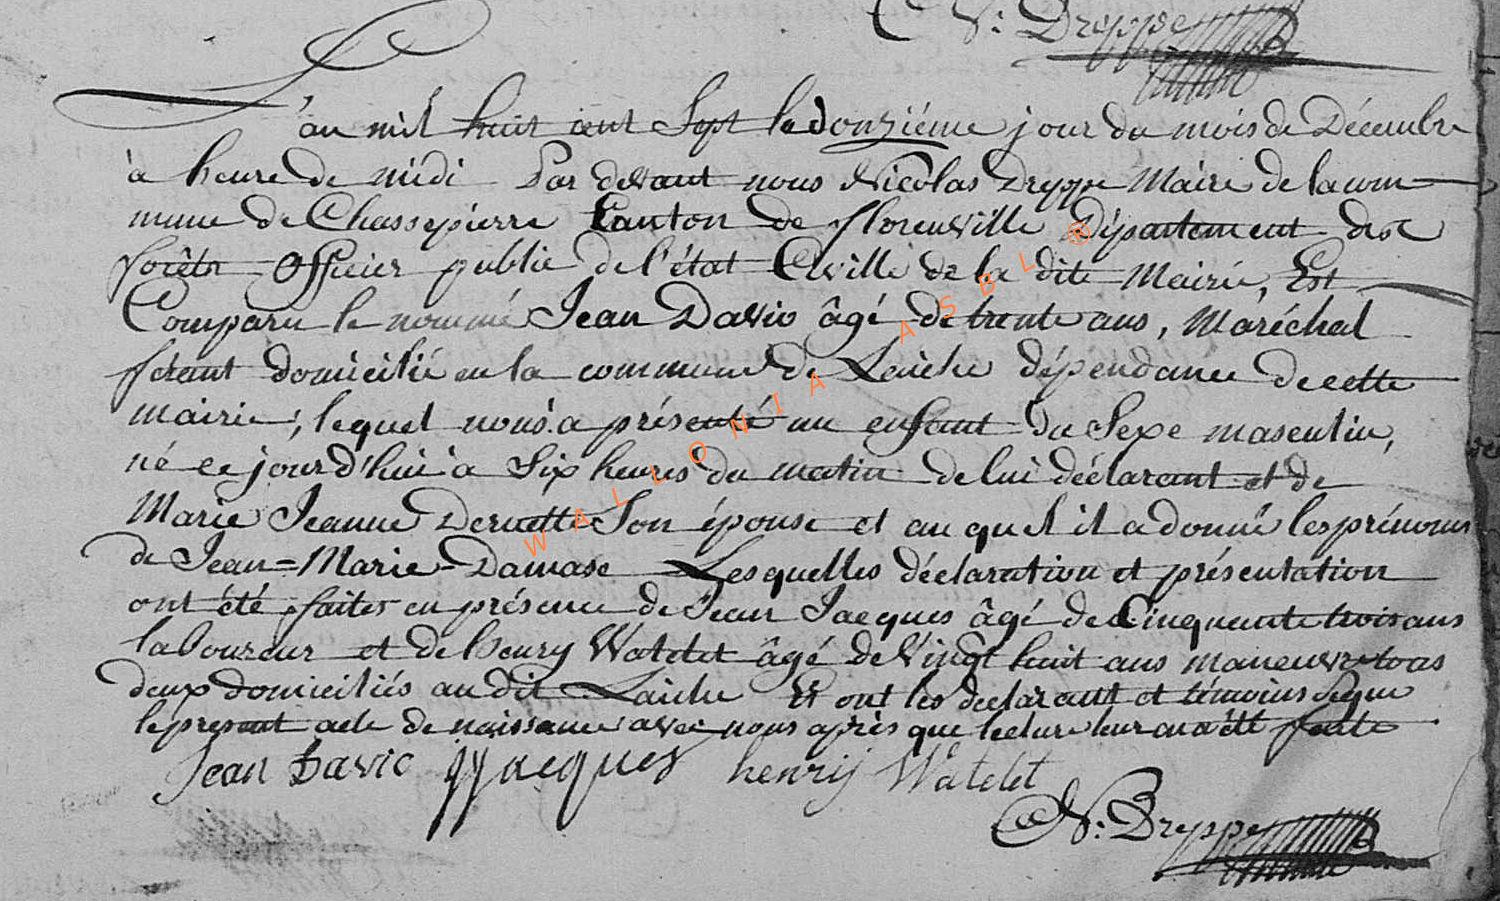 N: Dreppe
L'an mil huit cent Sept le donziéme jour du mois de Décembre
à heure de midi Par devant nous Nicolas Dreppe Maire de la com
mune de Chassepierre Canton de florenville Département des
forêts Officier public de l'état Civille de la dite Mairie, Est
Comparu le nommé Jean Davio âgé de trente ans, Maréchal
ferant domicilié en la commune de Laiche dépendance de cette
mairie, lequel nous a présenté un enfant du Sexe masculin,
né ce jourd'hui à Six heures du matin de lui déclarant et de
Marie Jeanne Deruette Son épouse et au quel il a donné les prénoms
de Jean=Marie=Damase Lesquelles déclaration et présentation
ont été faites en présence de Jean Jacques âgé de Cinquante trois ans
laboureur et de henry Watelet âgé de Vingt huit ans maneuvre tous
deux domiciliés au dit Laiche Et ont les declarant et témoins Signe
le present acte de naissance avec nous après que lecture leur en a été faite
Jean Davio JJacques henrij Watelet
N: Dreppe
WALLONIA ASBL ®